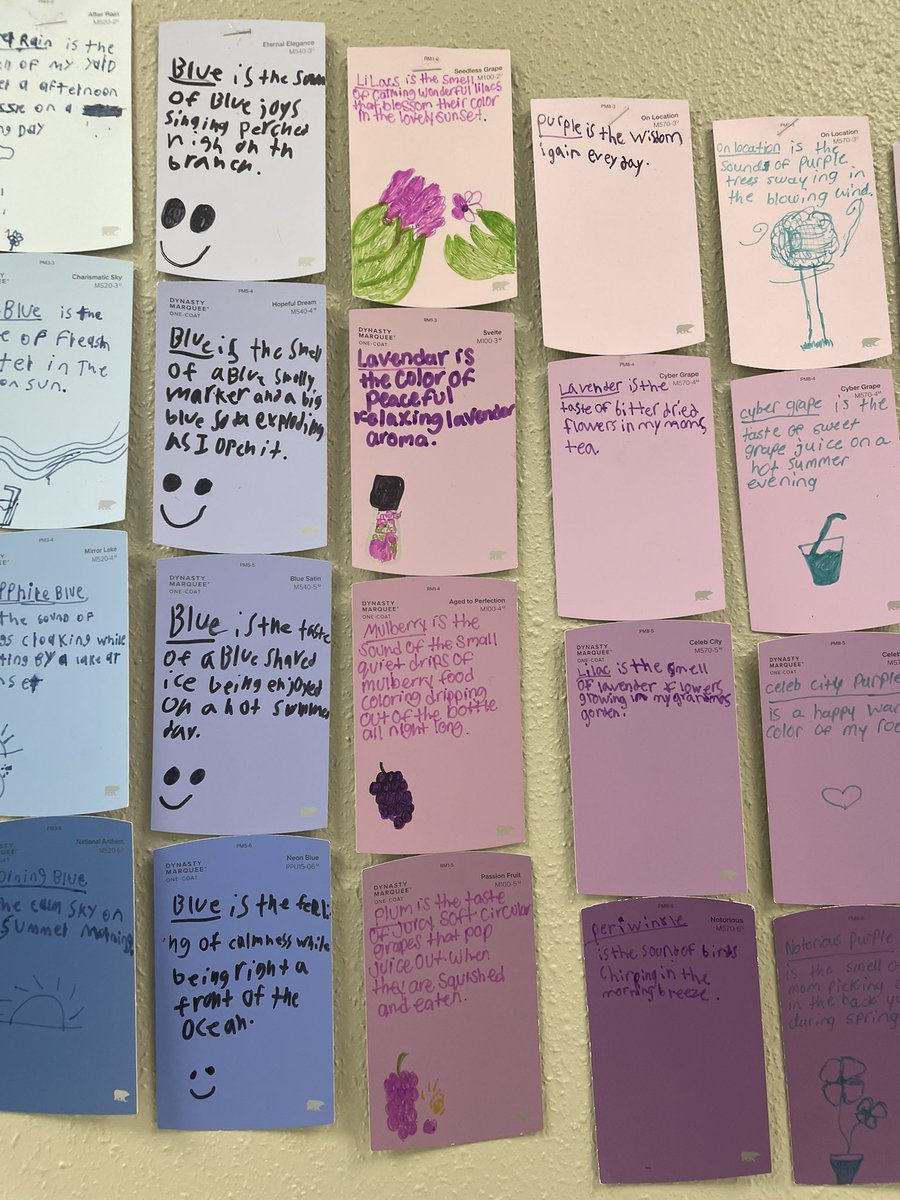 After Rain
M520-2
Rain is the
of my yard
a afternoon
on a
day
PM3-3
Charismatic Sky
M520-3
Blue is the
of Freash
in The
sun.
PM3-4
Mirror Lake
M520-4
Blue
the sound of
cloaking while
By a lake at
National Anthem
M520-5
ONE-COAT
Blue
calm sky on
Summer Morning.
Eternal Elegance
M540-3
Blue is the
of Blue joys
singing perched
high on th
branch.
PM5-4
DYNASTY
MARQUEE
ONE-COAT
Hopeful Dream
M540-4
Blue is the smell
of a Blue smelly
marker and a big
blue soda exploding
as I open it.
PM5-5
DYNASTY
MARQUEE
ONE-COAT
Blue Satin
M540-5
Blue is the taste
of a Blue shaved
ice being enjoyed
on a hot summer
day.
PM5-6
DYNASTY
MARQUEE
ONE-COAT
Neon Blue
PPU15-06
Blue is the feeli
ng of calmness while
being right a
front of the
Ocean.
RM1-2
Seedless Grape
M100-2
Lilacs is the smell
of calming wonderful lilacs
that blossom their color
in the lovely sunset.
RM1-3
DYNASTY
MARQUEE
ONE-COAT
Svelte
M100-3
Lavendar is
the color of
peaceful
relaxing lavender
aroma.
RM1-4
DYNASTY
MARQUEE
ONE-COAT
Aged to Perfection
M100-4
Mulberry is the
sound of the small
quiet drips of
mulberry food
coloring dripping
out of the bottle
all night long.
RM1-5
DYNASTY
MARQUEE
ONE-COAT
Passion Fruit
M100-5
Plum is the taste
of juicy soft circular
grapes that pop
juice out when
they are squished
and eaten.
PM8-3
On Location
M570-3
purple is the wisdom
i gain every day.
PM8-4
Cyber Grape
M570-4
Lavender is the
taste of bitter dried
flowers in my moms
tea.
PM8-5
DYNASTY
MARQUEE
ONE-COAT
Celeb City
M570-5
Lilac is the smell
of lavender flowers
growing in my grandmas
gorden.
PM8-6
Notorious
M570-6
periwinkle
is the sound of birds
chirping in the
morning breeze.
On Location
M570-3
on location is the
sound of purple
trees swaying in
the blowing wind.
PM8-4
Cyber Grape
M570-4
cyber grape is the
taste of sweet
grape juice on a
hot summer
evening
PM8-5
DYNASTY
MARQUEE
ONE-COAT
celeb city purple
is a happy
color of my
Notorious purple
is the smell
mom picking
in the back
during spring